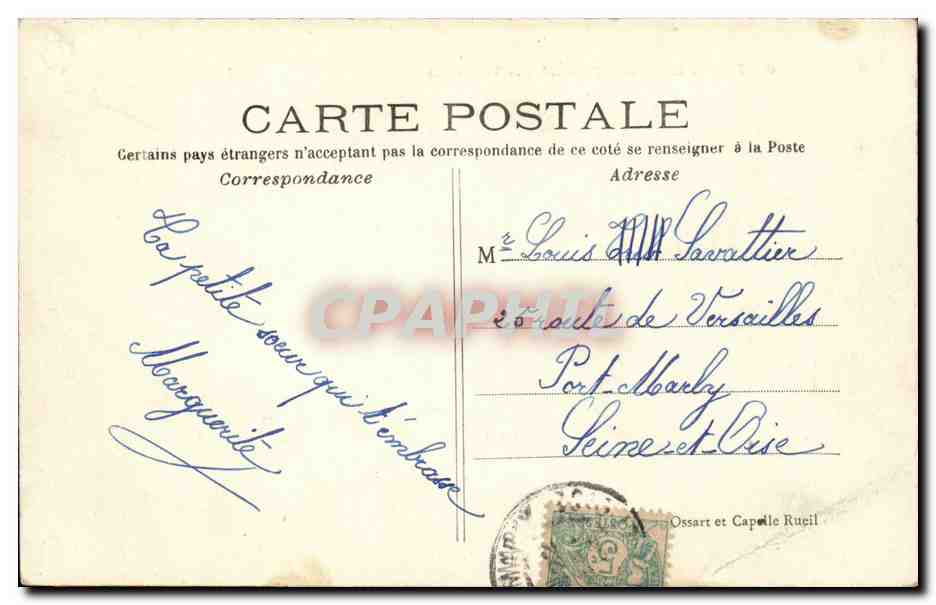 CARTE POSTALE
Certains pays étrangers n'acceptant pas la correspondance de ce coté se renseigner à la Poste
Correspondance
Adresse
Ta petite soeur qui t'embrasse
Marguerite
Mr Louis Savattier
25 route de Versailles
Port-Marly
Seine-et-Oise
CPAPHIL
Ossart et Capelle Rueil
5